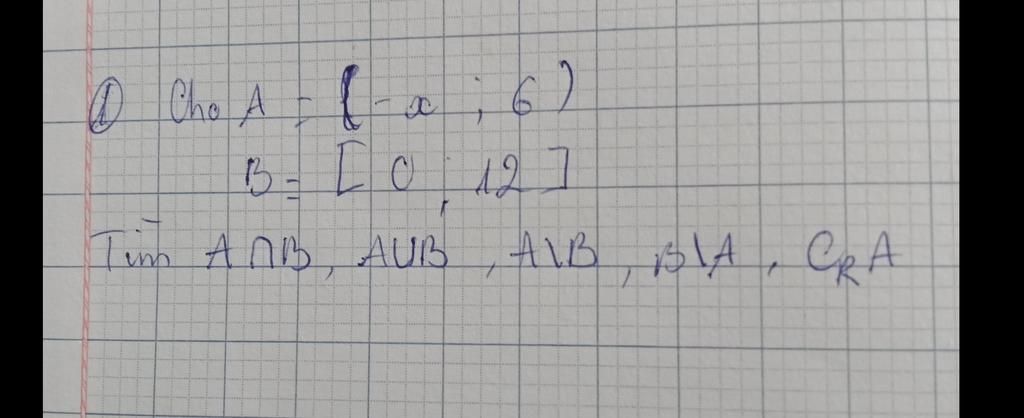 ① Cho A = (-∞ ; 6)
B = [ 0 ; 12 ]
Tìm A∩B, A∪B, A\B, B\A, CRA